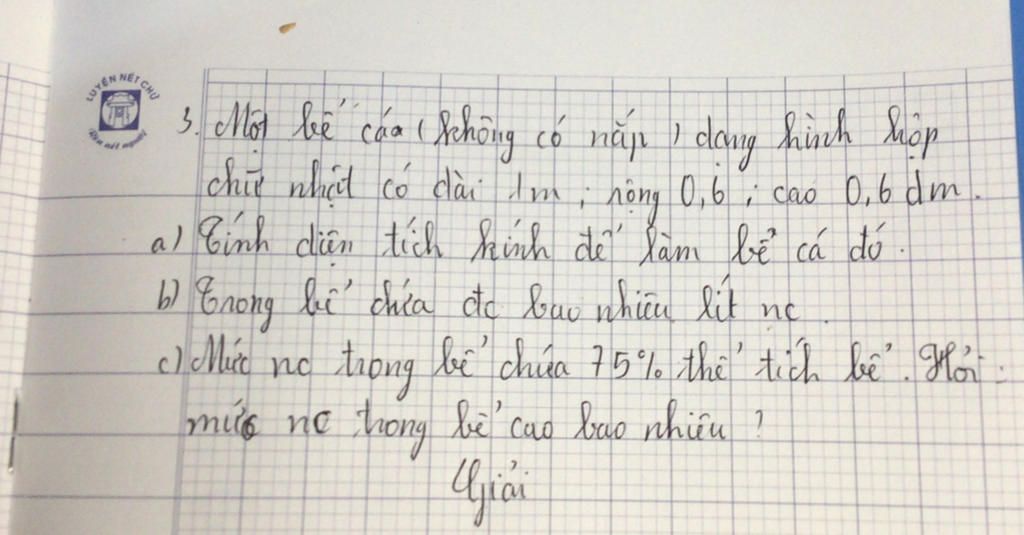 LUYỆN NÉT CHỮ
Rèn nết người
3. Một bể cá (không có nắp) dạng hình hộp
chữ nhật có dài 1m ; rộng 0,6 ; cao 0,6 dm.
a) Tính diện tích kính để làm bể cá đó.
b) Trong bể chứa đc bao nhiêu lít nc.
c) Mức nc trong bể chứa 75% thể tích bể. Hỏi:
mức nc trong bể cao bao nhiêu?
Giải